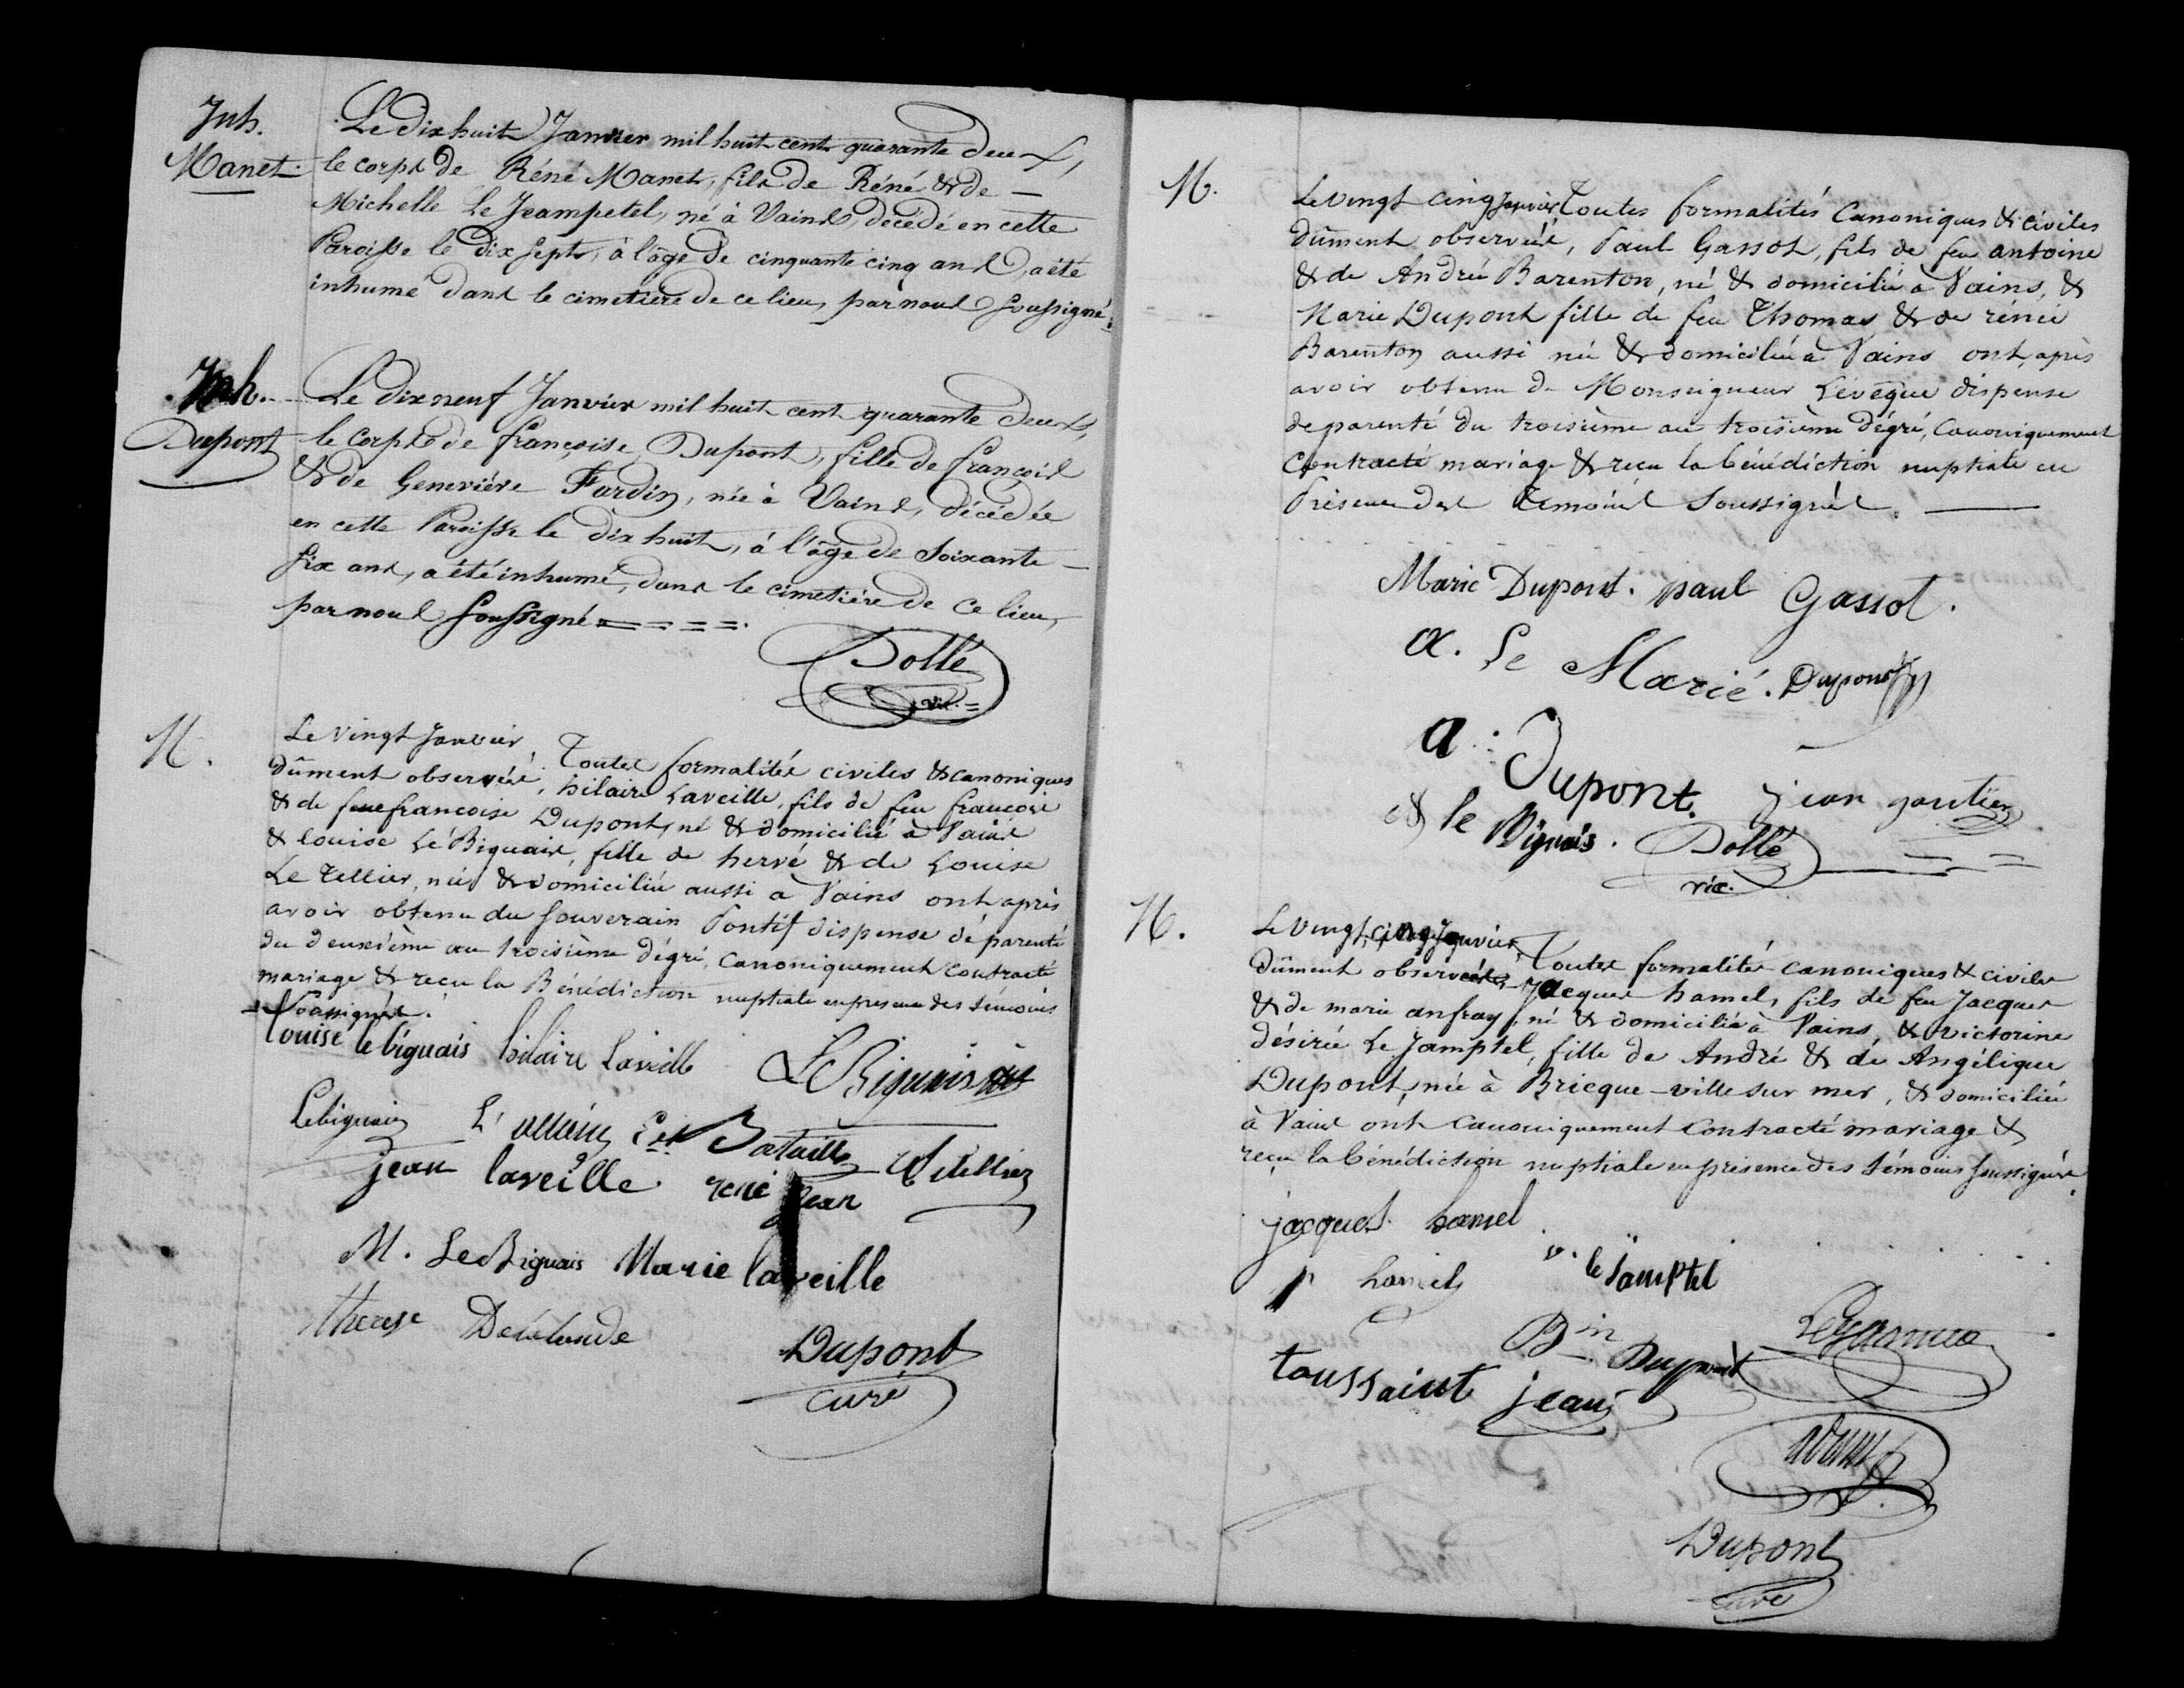 Inh.
Manet.
Le dix huit Janvier mil huit cent quarante deux,
le corps de Réné Manet, fils de Réné & de —
Michelle Le Jeampetel, né à Vains, décédé en cette
Paroisse le dix sept, à l'âge de cinquante cinq ans, a été
inhumé dans le cimetière de ce lieu, par nous soussigné.
Inh.
Dupont
Le dix neuf Janvier mil huit cent quarante deux,
le corps de françoise Dupont, fille de françois
& de Geneviéve Fardin, née à Vains, décédée
en cette Paroisse le dix huit, à l'âge de soixante —
six ans, a été inhumé, dans le cimetiére de ce lieu,
par nous soussigné = = = =.
Dollé
vic. =
M.
Le vingt Janvier, Toutes formalités civiles & canoniques
dûment observées, hilaire Laveille, fils de feu françois
& de feue francoise Dupont, né & domicilié à Vains
& louise Le Biguais, fille de hervé & de Louise
Le Tellier, née & domiciliée aussi a Vains ont après
avoir obtenu du souverain Pontif dispense de parenté
du deuxième au troisième dégré, canoniquement contracté
mariage & reçu la Bénédiction nuptiale en presence des témoins
soussignés.
louise le biguais hilaire Laveille Le Biguais
Lebiguais Bataille Letellier
jean laveille rené jean
M. Le Biguais Marie laveille
therese Delalande
Dupont
curé
M.
Le vingt cinq janvier Toutes formalités Canoniques & civiles
dûment observées, Paul Gassot, fils de feu antoine
& de Andrée Barenton, né & domicilié à Vains, &
Marie Dupont fille de feu Thomas & de rénée
Barenton aussi née & domiciliée à Vains ont, après
avoir obtenu de Monseigneur L'évêque dispense
de parenté du troisième au troisième dégré, Canoniquement
Contracté mariage & reçu la bénédiction nuptiale en
Présence des temoins soussignés. —
Marie Dupont. paul Gassot.
a. Le Marié. Dupont
a. Dupont. jean gautier
le Biguais. Dollé
vic.
M.
Le vingt cinq Janvier, Toutes formalités canoniques & civiles
dûment observées, Jacques hamel, fils de feu Jacques
& de marie anfray, né & domicilié à Vains, & victorine
désirée Le Jamptel, fille de André & de Angélique
Dupont, née à Bricque-ville sur mer, & domiciliée
à Vains ont Canoniquement Contracté mariage &
reçu la bénédiction nuptiale en présence des témoins soussignés.
jacques hamel
v. le Jamptel
p hamel
Bin Dupont
toussaint jean
Dupont
curé